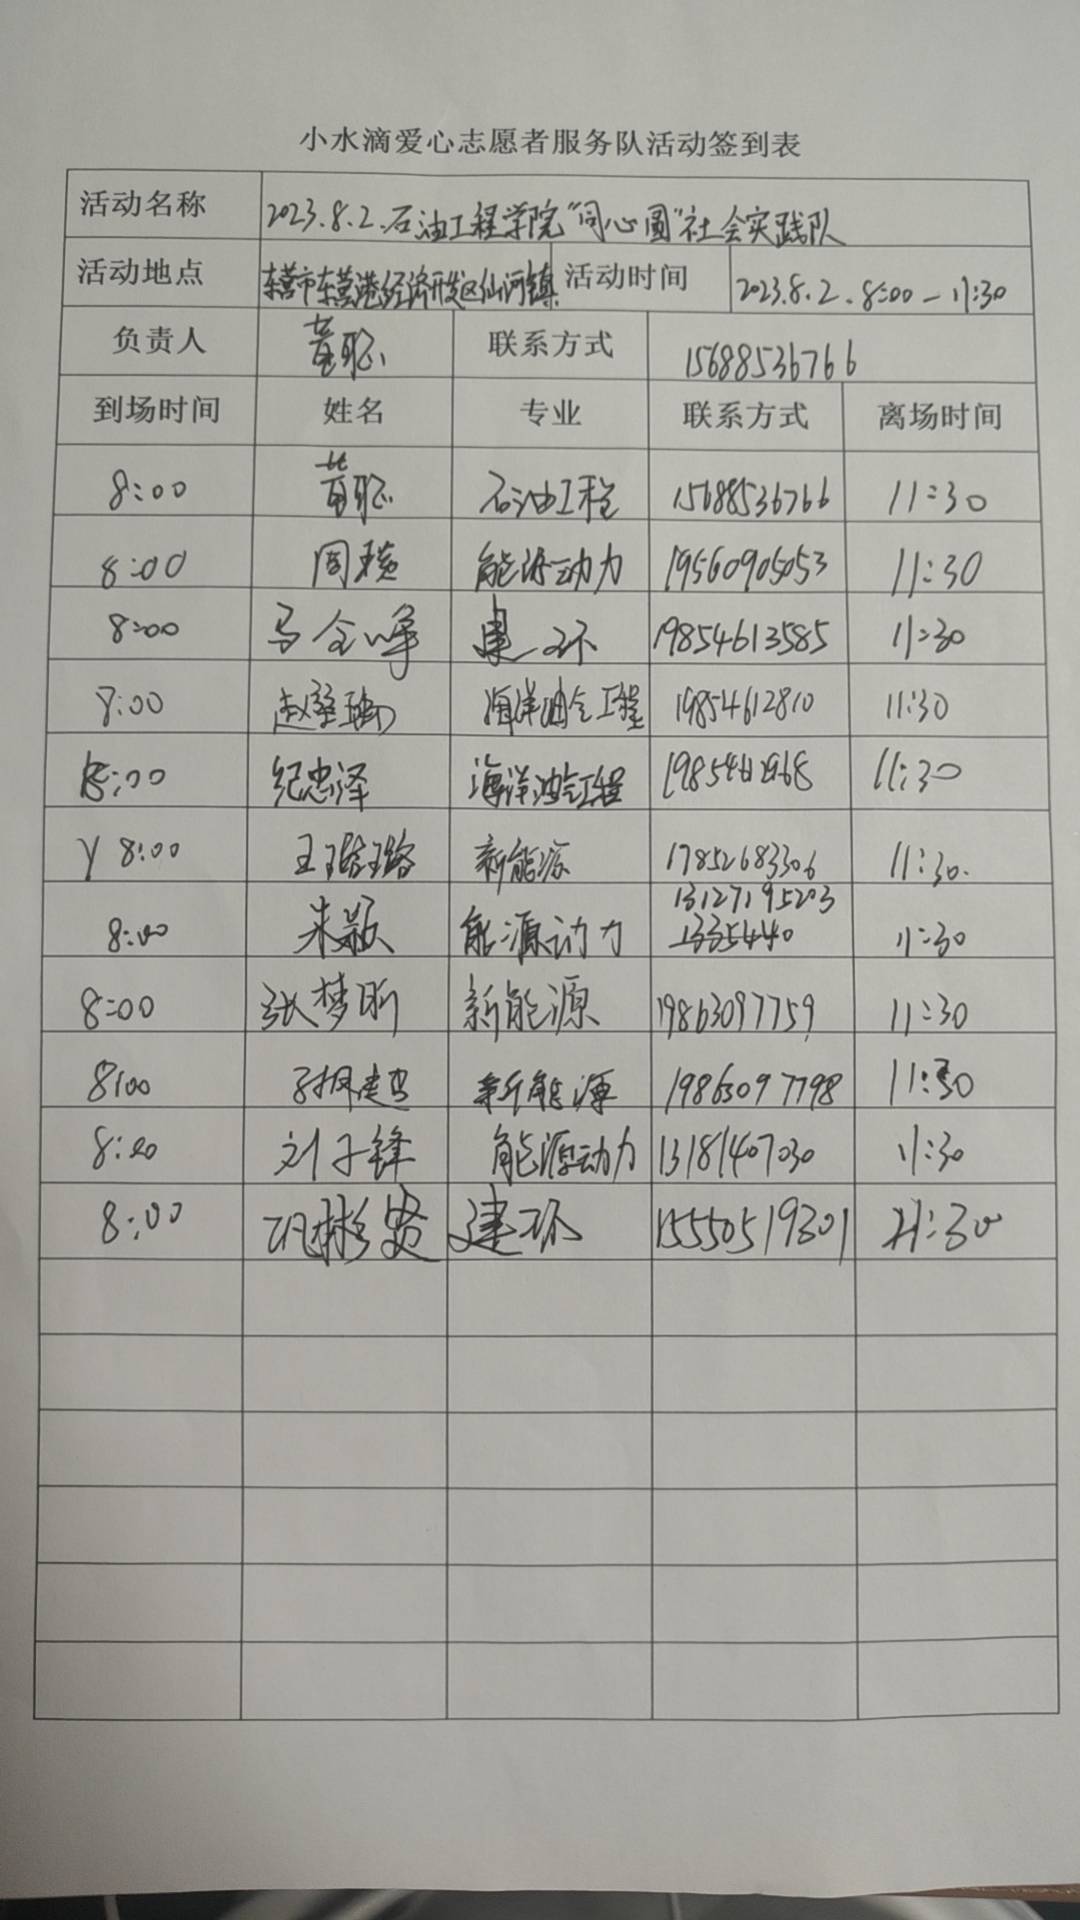 小水滴爱心志愿者服务队活动签到表
活动名称 2023.8.2.石油工程学院"同心圆"社会实践队
活动地点 东营市东营港经济开发区仙河镇 活动时间 2023.8.2.8:00-11:30
负责人 黄聪 联系方式 15688536766
到场时间 姓名 专业 联系方式 离场时间
8:00 黄聪 石油工程 15688536766 11:30
8:00 周 能源动力 19560905053 11:30
8:00 马全峰 建环 19854613585 11:30
8:00 赵 海洋油气工程 19854612810 11:30
8:00 纪忠泽 海洋油气工程 11:30
8:00 王 新能源 17852683306 11:30.
8:00 朱颖 能源动力 13127195203 11:30
8:00 张梦昕 新能源 19863097759 11:30
8:00 新能源 19863097798 11:30
8:00 刘子锋 能源动力 13181407030 11:30
8:00 巩彬贤 建环 15550519301 11:30